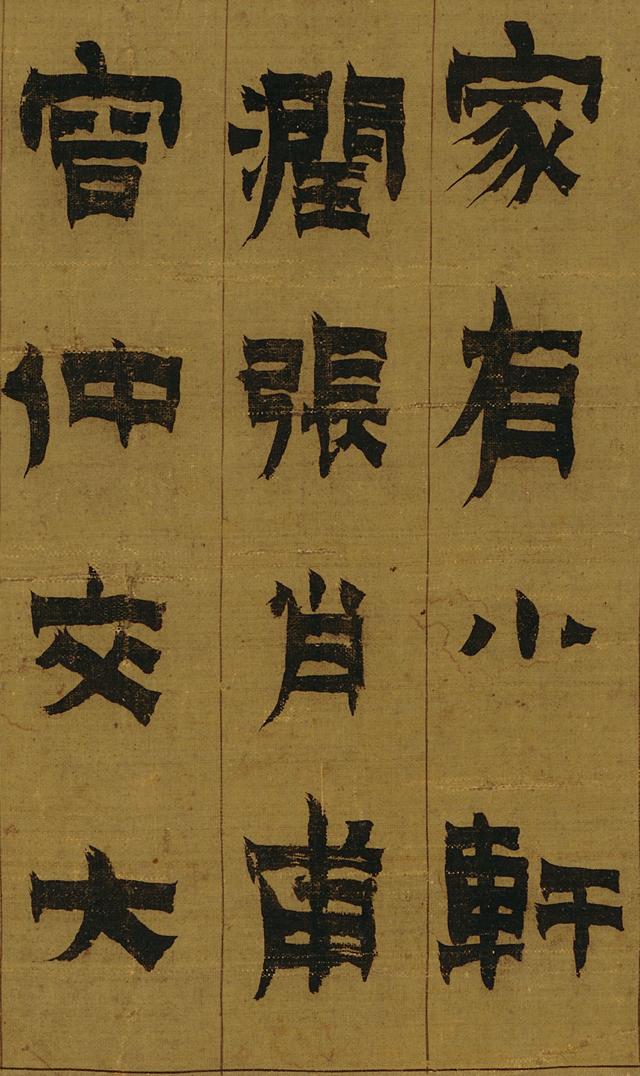 家有小軒
潤張肖甫
仲交大